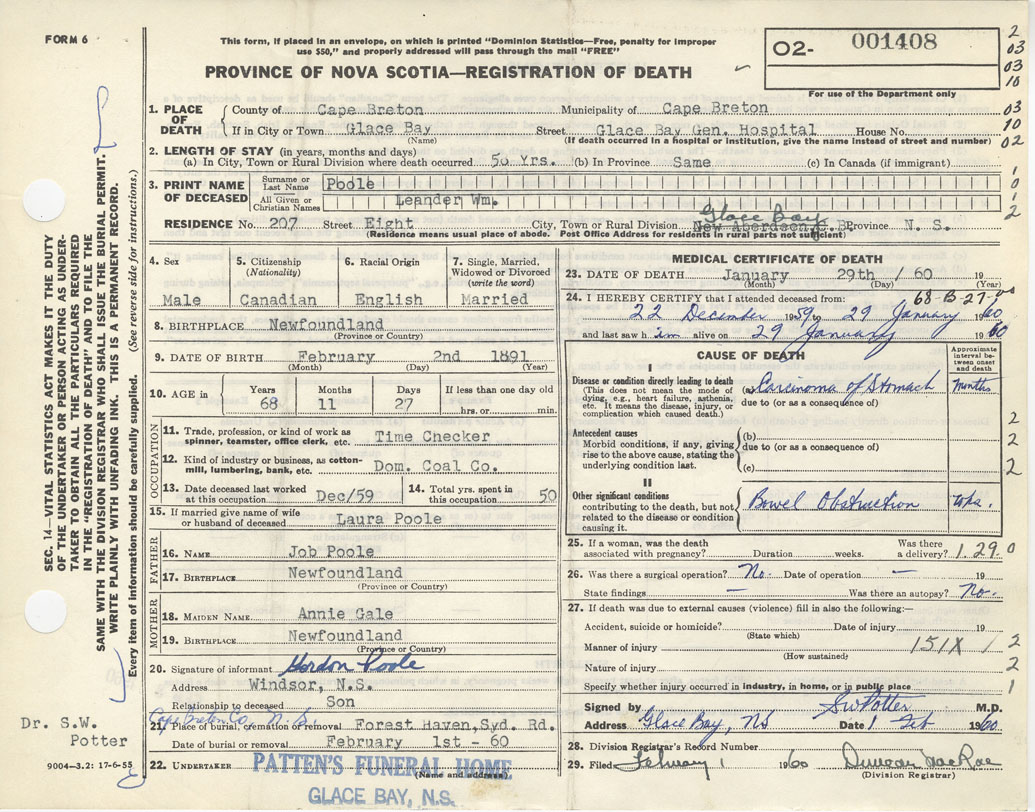 FORM 6
This form, if placed in an envelope, on which is printed "Dominion Statistics—Free, penalty for improper
use $50," and properly addressed will pass through the mail "FREE"
PROVINCE OF NOVA SCOTIA—REGISTRATION OF DEATH
02- 001408
For use of the Department only
2
03
03
10
03
10
02
1. PLACE OF DEATH
County of Cape Breton Municipality of Cape Breton
If in City or Town Glace Bay Street Glace Bay Gen. Hospital House No.
(Name) (If death occurred in a hospital or institution, give the name instead of street and number)
2. LENGTH OF STAY (in years, months and days)
(a) In City, Town or Rural Division where death occurred 50 Yrs. (b) In Province Same (c) In Canada (if immigrant)
3. PRINT NAME OF DECEASED
Surname or Last Name Poole
All Given or Christian Names Leander Wm.
1
0
1
2
Glace Bay
RESIDENCE No. 207 Street Eight City, Town or Rural Division New Aberdeen C.B. Province N. S.
(Residence means usual place of abode. Post Office Address for residents in rural parts not sufficient)
4. Sex
Male
5. Citizenship
(Nationality)
Canadian
6. Racial Origin
English
7. Single, Married,
Widowed or Divorced
(write the word)
Married
8. BIRTHPLACE Newfoundland
(Province or Country)
9. DATE OF BIRTH February 2nd 1891
(Month) (Day) (Year)
10. AGE in
Years 68
Months 11
Days 27
If less than one day old
hrs. or min.
OCCUPATION
11. Trade, profession, or kind of work as
spinner, teamster, office clerk, etc. Time Checker
12. Kind of industry or business, as cotton-
mill, lumbering, bank, etc. Dom. Coal Co.
13. Date deceased last worked
at this occupation Dec/59
14. Total yrs. spent in
this occupation 50
15. If married give name of wife
or husband of deceased Laura Poole
FATHER
16. NAME Job Poole
17. BIRTHPLACE Newfoundland
(Province or Country)
MOTHER
18. MAIDEN NAME Annie Gale
19. BIRTHPLACE Newfoundland
(Province or Country)
20. Signature of informant Gordon Poole
Address Windsor, N.S.
Relationship to deceased Son
Cape Breton Co. N. S.
21. Place of burial, cremation or removal Forest Haven, Syd. Rd.
Date of burial or removal February 1st - 60
22. UNDERTAKER PATTEN'S FUNERAL HOME
(Name and address)
GLACE BAY, N.S.
MEDICAL CERTIFICATE OF DEATH
23. DATE OF DEATH January 29th / 60 19
(Month) (Day) (Year)
24. I HEREBY CERTIFY that I attended deceased from: 68-B-27-00
22 December 1959 to 29 January 1960
and last saw him alive on 29 January 1960
CAUSE OF DEATH
Approximate
interval be-
tween onset
and death
I
Disease or condition directly leading to death
(This does not mean the mode of
dying, e.g., heart failure, asthenia,
etc. It means the disease, injury, or
complication which caused death.)
(a) Carcinoma of Stomach months
due to (or as a consequence of)
2
Antecedent causes
Morbid conditions, if any, giving
rise to the above cause, stating the
underlying condition last.
(b)
due to (or as a consequence of)
(c)
2
2
II
Other significant conditions
contributing to the death, but not
related to the disease or condition
causing it.
Bowel Obstruction wks.
25. If a woman, was the death
associated with pregnancy? Duration weeks. Was there
a delivery? 1.29.0
26. Was there a surgical operation? No. Date of operation — 19
State findings — Was there an autopsy? No.
27. If death was due to external causes (violence) fill in also the following:—
Accident, suicide or homicide? Date of injury 19
(State which)
Manner of injury 151X 1 2
(How sustained)
Nature of injury 2
Specify whether injury occurred in industry, in home, or in public place 1
Signed by SW Potter M.D.
Address Glace Bay, NS Date 1 Feb 1960
28. Division Registrar's Record Number
29. Filed February 1 1960 Duncan MacRae
(Division Registrar)
SEC. 14—VITAL STATISTICS ACT MAKES IT THE DUTY
OF THE UNDERTAKER OR PERSON ACTING AS UNDER-
TAKER TO OBTAIN ALL THE PARTICULARS REQUIRED
IN THE "REGISTRATION OF DEATH" AND TO FILE THE
SAME WITH THE DIVISION REGISTRAR WHO SHALL ISSUE THE BURIAL PERMIT.
WRITE PLAINLY WITH UNFADING INK. THIS IS A PERMANENT RECORD.
Every item of information should be carefully supplied. (See reverse side for instructions.)
Dr. S.W.
Potter
9004—3.2: 17-6-55